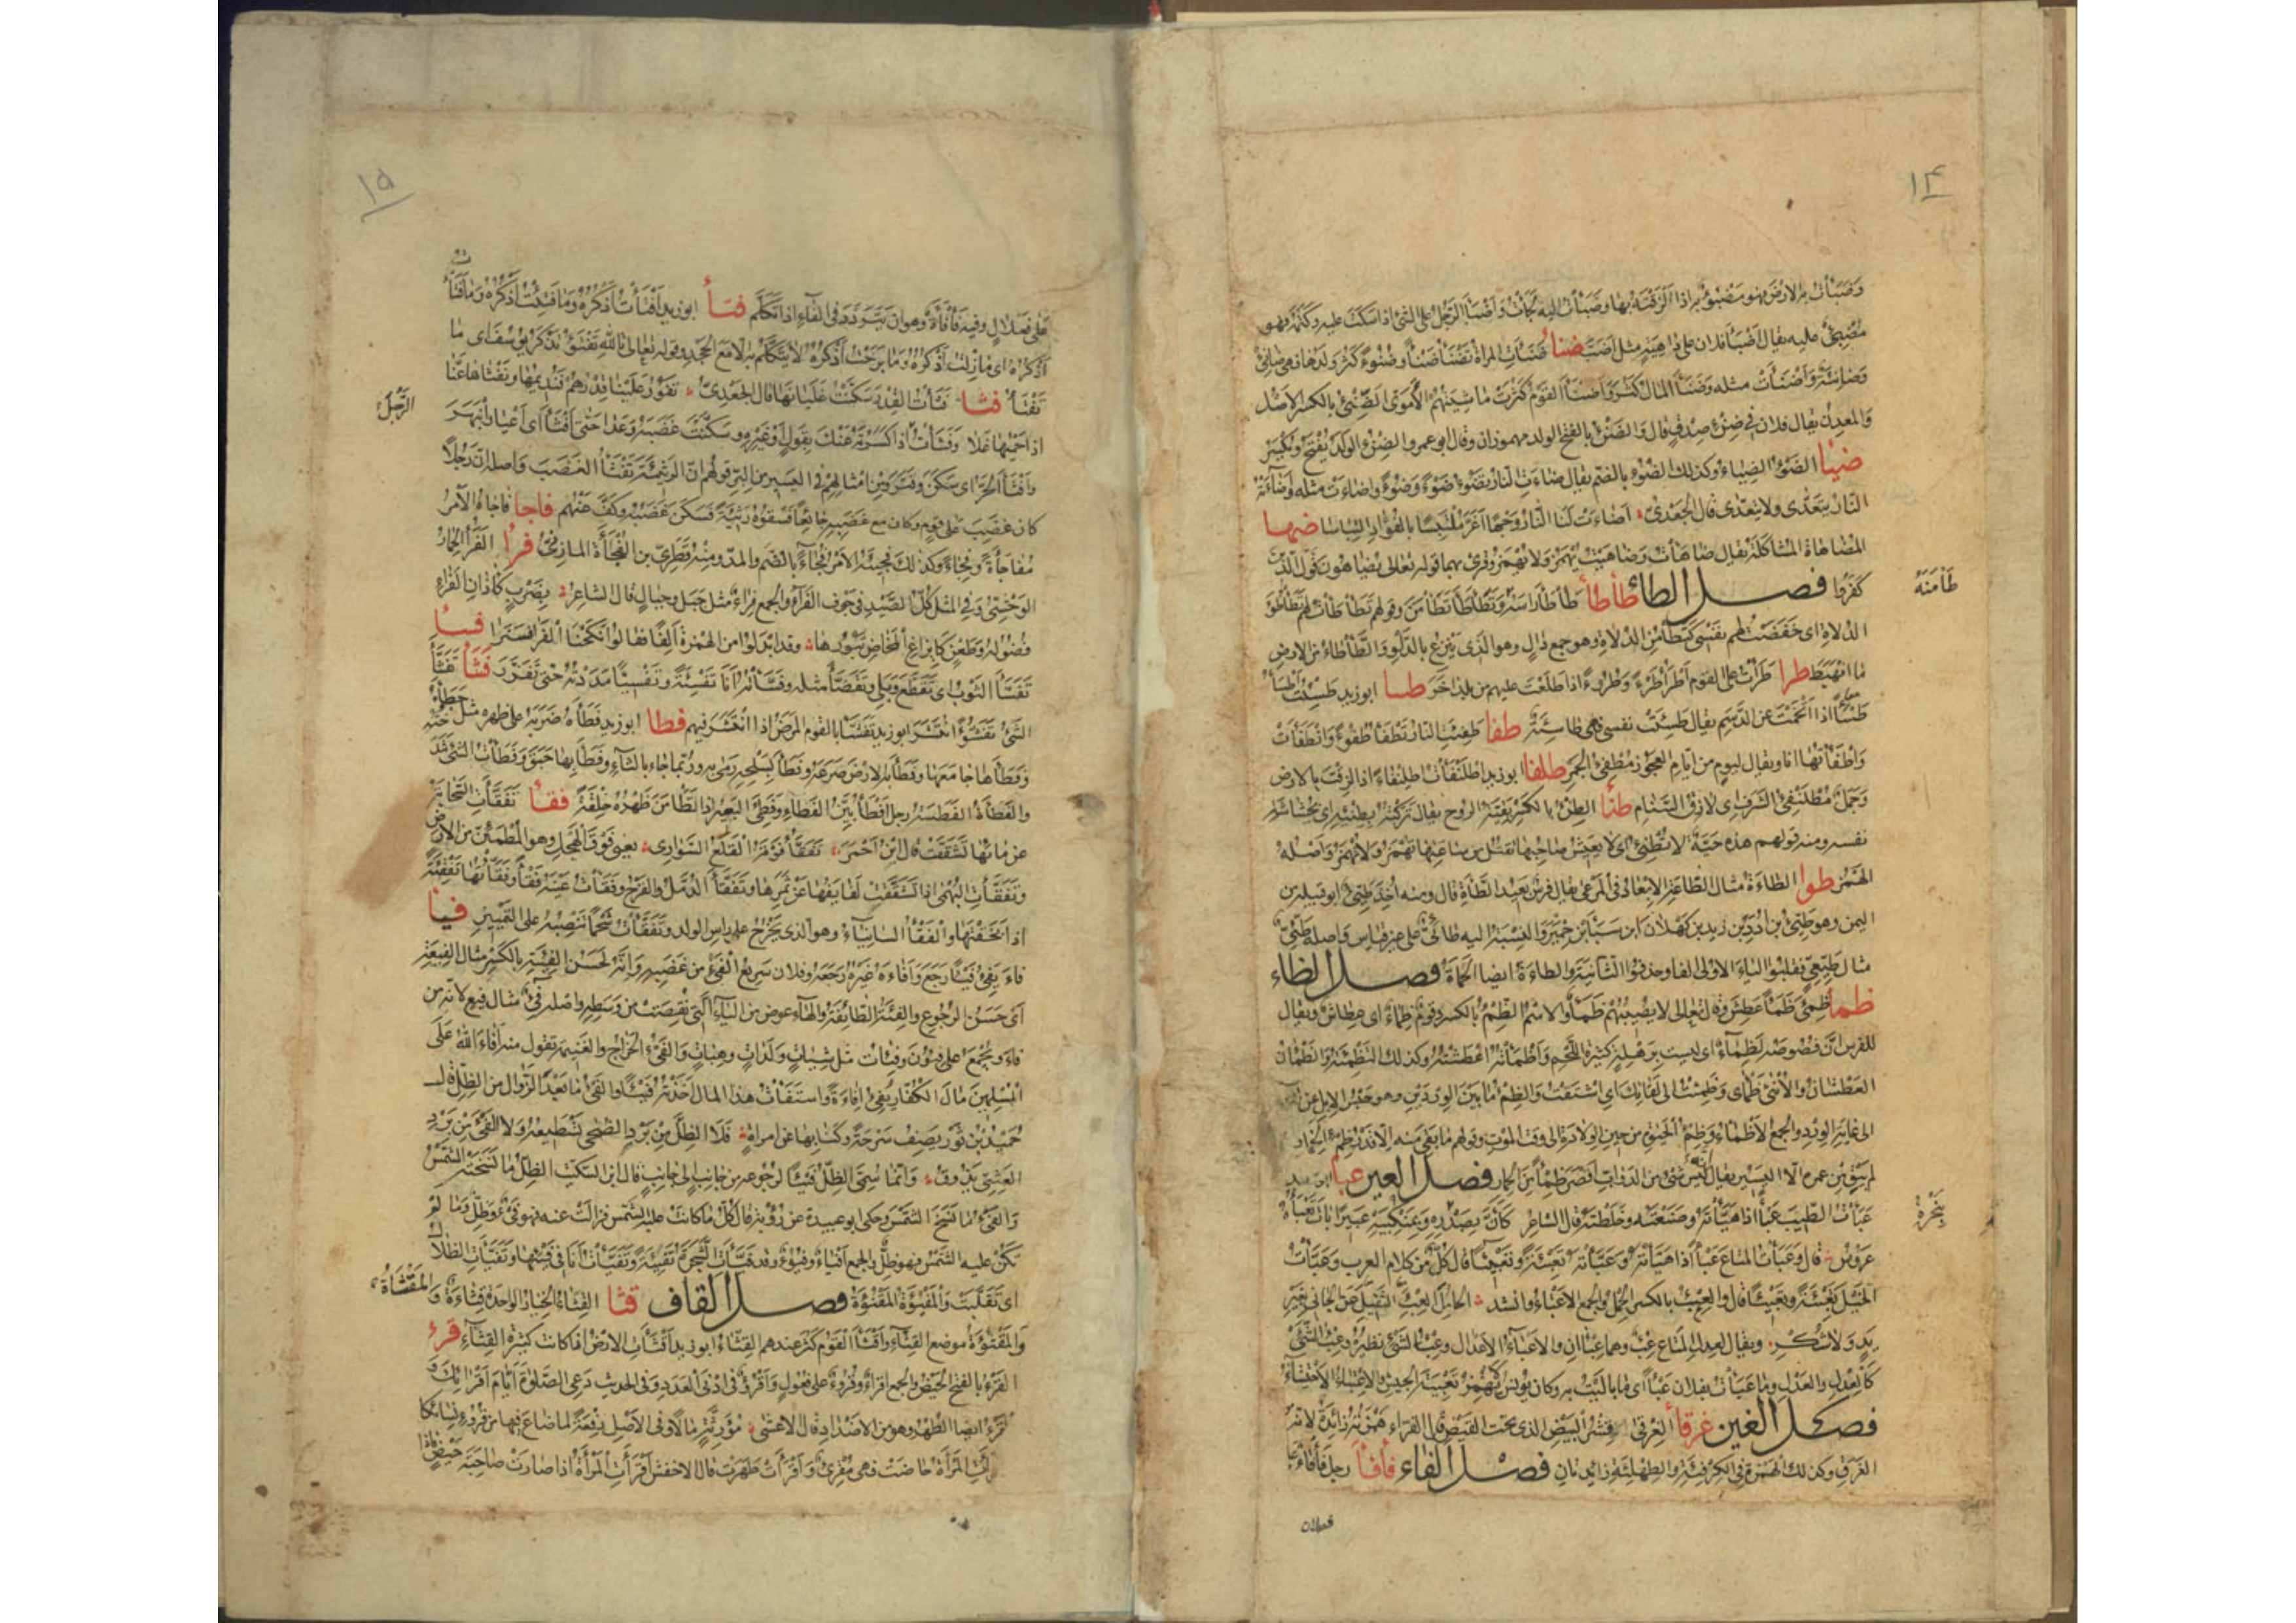 ١٤
وَضَبَأْتُ بالارض فهو مضبوءٌ به اذا الزقته بها وضبأت اليه لجأت واضبأ الرجل على الشئ اذا سكت عليه وكتمه فهو
مضبئ عليه يقال اضبأ فلان على داهية مثل اضب ضنأ ضنأت المراة تضنأ ضنأ وضنوء كثر ولدها فهي ضانئ
وضانئة واضنأت مثله وضنأ المال كثر واضنأ القوم كثرت ماشيتهم الاموى الضنئ بالكسر الاصل
والمعدن يقال فلان في ضنء صدق قال والضنء بالفتح الولد مهموزان وقال ابو عمرو الضنء الولد يفتح ويكسر
ضيأ الضوء الضياء وكذلك الضوء بالضم يقال ضاءت النار تضوء ضوءً وضُوءً واضاءت مثله واضاءته
النار يتعدى ولا يتعدى قال الجعدى اضاءت لنا النار وجها اغر ملتبسا بالفؤاد التباسا ضها
المضاهاة المشاكلة يقال ضاهأت وضاهيت يهمز ولا يهمز وقرئ بهما قوله تعالى يضاهون قول الذين
كفروا فصل الطاء طأطأ طأطأ راسه وتطأطأ تطأمن وقولهم تطأطأت لهم تطأطؤ
طأمنه
الدلاة اى خفضت لهم نفسى كتطأمن الدلاة وهو جمع دال وهو الذى ينزع بالدلو والطأطاء من الارض
ما انهبط طرا طرأت على القوم اطرأ طرءً وطروءً اذا طلعت عليهم من بلد اخر طسا ابو زيد طسئت اطسأ
طسأ اذا اتخمت عن الدسم يقال طسئت نفسى فهي طاسئة طفا طفئت النار تطفأ طفوءً وانطفأت
واطفأتها انا ويقال ليوم من ايام العجوز مطفئ الجمر طلفا ابو زيد اطلنفأت اطلنفاءً اذا لزقت بالارض
وجمل مطلنفئ الشرف اى لازق السنام طنأ الطنء بالكسر بقية الروح يقال تركته بطنئه اى بحشاشة
نفسه ومنه قولهم هذه حية لا تطنئ اى لا يعيش صاحبها تقتل من ساعتها تهمز ولا تهمز واصله
الهمز طوا الطاءة مثال الطاعة الابعاد فى المرعى يقال فرس بعيد الطاءة قال ومنه اخذ طيئ ابو قبيلة من
اليمن وهو طيئ بن ادد بن زيد بن كهلان ابن سبأ بن حمير والنسبة اليه طائى على غير قياس واصله طيئى
مثال طيعى فقلبوا الياء الاولى الفا وحذفوا الثانية والطاءة ايضا الحماة فصل الظاء
ظمأ ظمئ ظمأ عطش وقال تعالى لا يصيبهم ظمأ والاسم الظمء بالكسر وقوم ظماء اى عطاش ويقال
للفرس ان فصوصه لظماء اى ليست برهلة كثيرة اللحم واظمأته اعطشته وكذلك التظمئة والظمآن
العطشان والانثى ظمأى وظمئت الى لقائك اى اشتقت والظمء ما بين الوردين وهو حبس الابل عن الماء
الى غاية الورد والجمع الاظماء وظمء الحيوة من حين الولادة الى وقت الموت وقولهم ما بقى منه الا قدر ظمء الحمار
لم يبق من عمره الا اليسير يقال انه ليس شئ من الدواب اقصر ظمأ من الحمار فصل العين عبأ ابو زيد
عبأت الطيب عبأ اذا هيأته وصنعته وخلطته قال الشاعر كأن بصدره وبمنكبيه عبيرا بات تعبأه
بنحره
عروس قال وعبأت المتاع عبأ اذا هيأته وعبأته تعبئة وتعبيئا قال كل من كلام العرب وعبأت
الخيل تعبئة وتعبيئا قال والعبء بالكسر الحمل والجمع الاعباء وانشد الحامل العبء الثقيل عن الجانى بغير
يد ولا شكر ويقال لعدل المتاع عبء وهما عبئان والاعباء الاعدال وعبء الشئ نظيره وعبء الشمس
كالعدل والعدل وما عبأت بفلان عبأ اى ما باليت به وكان يونس لا يهمز تعبية الجيش والاعتباء الاحتشاء
فصل الغين غرقأ الغرقئ قشر البيض الذى تحت القيض قال الفراء همزته زائدة لانه من
الغرق وكذلك الهمزة فى الكرفئة والطهلئة زائدتان فصل الفاء فأفأ رجل فأفاء
فعلال
١٥
على فعلال وفيه فأفأة وهو ان يتردد فى الفاء اذا تكلم فتأ ابو زيد افتأت اذكره وما فتئت اذكره وما فتأت
اذكره اى ما زلت اذكره وما برحت اذكره لا يتكلم به الا مع الجحد وقوله تعالى تالله تفتؤ تذكر يوسف اى ما
تفتأ فثأ فثأت القدر سكنت غليانها قال الجعدى تفور علينا قدرهم فنديمها ونفثأها عنا
الرجل
اذا حميها غلا وفثأت اذا كسرته عنك بقول او غيره وسكنت غضبه وعدا حتى افثأ اى اعيا وانبهر
وافثأ الحر اى سكن وفتر ومن امثالهم فى اليسير من البر قولهم ان الرثيئة تفثأ الغضب واصله ان رجلا
كان غضب على قوم وكان مع غضبه جائعا فسقوه رثيئة فسكن غضبه وكف عنهم فاجا فاجأه الامر
مفاجأة وفجاءً وكذلك فجئه الامر فجاءة بالضم والمد ومنه قطرى بن الفجاءة المازنى فرأ الفرأ الحمار
الوحشى وفي المثل كل الصيد فى جوف الفرا والجمع فراء مثل جبل وجبال قال الشاعر بضرب كآذان الفراء
فضوله وطعن كايزاغ المخاض تبورها وقد ابدلوا من الهمزة الفا فقالوا انكحنا الفرا فسنرى فسأ
تفسأ الثوب اى تقطع وبلى وتفصأ مثله وفسأته انا تفسئة وتفسيئا مددته حتى تفزر فشأ تفشأ
الشئ تفشؤا انتشر ابو زيد تفشأ بالقوم المرض اذا انتشر فيهم فطا ابو زيد فطأه ضربه على ظهره مثل حطأه
وفطأها جامعها وفطأ به الارض صرعه وفطأ بسلحه رمى به وربما جاء بالثاء وفطأ بها حبق وفطأت الشئ شدخته
والفطأة الفطسة رجل افطأ بين الفطاء وفطئ البعير اذا تطامن ظهره خلقة فقأ تفقأت السحابة
عن مائها تشققت قال ابن احمر تفقأ فوقه القلع السوارى يعنى فوق الهجل وهو المطمئن من الارض
وتفقأت البهمى اذا تشققت لفائفها عن ثمرها وتفقأ الدمل والقرح وفقأت عينه فقأ وفقأتها تفقئة
اذا نخقتها والفقأ السابياء وهو الذى يخرج على راس الولد وتفقأت شحما تنصبه على التمييز فيأ
فاء يفئ فيئا رجع وافاءه غيره رجعه وفلان سريع الفئ من غضبه وانه لحسن الفيئة بالكسر مثال الفيعة
اى حسن الرجوع والفئة الطائفة والهاء عوض من الياء التى نقصت من وسطه واصله فئ مثال فيع لانه من
فاء ويجمع على فئون وفئات مثل شيات ولدات وهبات والفئ الخراج والغنيمة تقول منه افاء الله على
المسلمين مال الكفار يفئ افاءة واستفأت هذا المال اخذته فيئا والفئ ما بعد الزوال من الظل قال
حميد بن ثور يصف سرحة وكنى بها عن امراة فلا الظل من برد الضحى تستطيعه ولا الفئ من برد
العشى تذوق وانما سمى الظل فيئا لرجوعه من جانب الى جانب قال ابن السكيت الظل ما نسخته الشمس
والفئ ما نسخ الشمس وحكى ابو عبيدة عن رؤبة قال كل ما كانت عليه الشمس فزالت عنه فهو فئ وظل وما لم
تكن عليه الشمس فهو ظل والجمع افياء وفيوء وقد فيأت الشجرة تفيئة وتفيأت انا فى فيئها وتفيأت الظلال
اى تقلبت والمفيؤة المقنؤة فصل القاف قثأ القثاء الخيار الواحدة قثاءة والمقثأة
والمقثؤة موضع القثاء واقثأ القوم كثر عندهم القثاء ابو زيد اقثأت الارض اذا كانت كثيرة القثاء قرء
القرء بالفتح الحيض والجمع اقراء وقروء على فعول واقرؤ فى ادنى العدد وفى الحديث دعى الصلوة ايام اقرائك و
القرء ايضا الطهر وهو من الاضداد قال الاعشى مؤرثة مالا وفى الاصل رفعة لما ضاع فيها من قروء نسائكا
اقرأت المرأة حاضت فهى مقرئ واقرأت طهرت قال الاخفش اقرأت المرأة اذا صارت صاحبة حيض فاذا